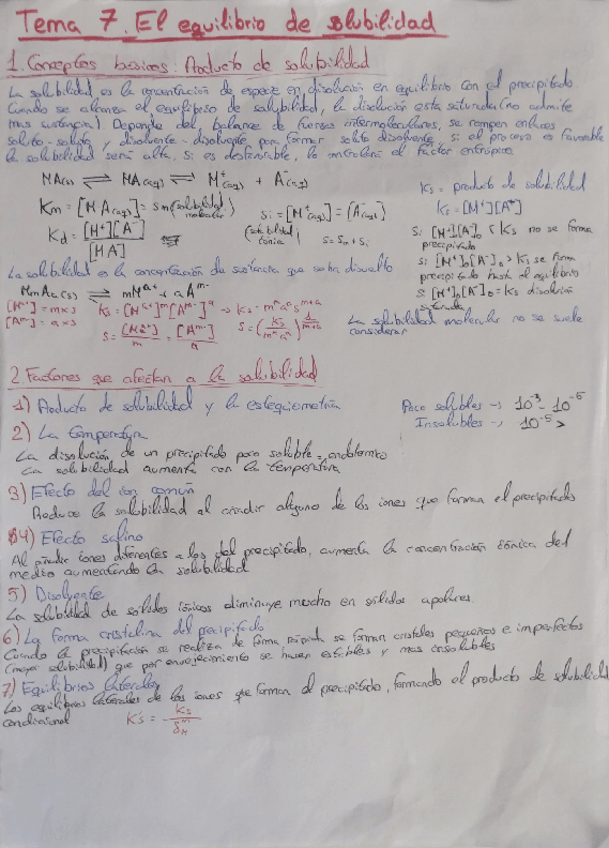 Tema 7. El equilibrio de solubilidad
1. Conceptos básicos: Producto de solubilidad
La solubilidad es la concentración de especie en disolución en equilibrio con el precipitado
Cuando se alcanza el equilibrio de solubilidad, la disolución esta saturada (no admite
mas sustancia). Depende del balance de fuerzas intermoleculares, se rompen enlaces
soluto-soluto y disolvente-disolvente para formar soluto disolvente, si el proceso es favorable
la solubilidad será alta, si es desfavorable, lo controlara el factor entrópico.
MA(s) ⇌ MA(aq) ⇌ M⁺(aq) + A⁻(aq)
Km = [MA(aq)] = sm (solubilidad molecular)
si = [M⁺(aq)] = [A⁻(aq)]
(solubilidad iónica)
s = sm + si
Kd = [M⁺][A⁻] / [MA]
Ks = producto de solubilidad
Ks = [M⁺][A⁻]
si [M⁺]₀[A⁻]₀ < Ks no se forma
precipitado
si [M⁺]₀[A⁻]₀ > Ks se forma
precipitado hasta el equilibrio
si [M⁺]₀[A⁻]₀ = Ks disolución
saturada
La solubilidad molecular no se suele
considerar
La solubilidad es la concentración de sustancia que se ha disuelto
MmAa(s) ⇌ mMᵃ⁺ + aAᵐ⁻
[Mᵃ⁺] = m×s
[Aᵐ⁻] = a×s
Ks = [Mᵃ⁺]ᵐ[Aᵐ⁻]ᵃ → Ks = mᵐaᵃsᵐ⁺ᵃ
s = [Mᵃ⁺]/m = [Aᵐ⁻]/a
s = (Ks/mᵐaᵃ)^(1/(m+a))
2. Factores que afectan a la solubilidad
1) Producto de solubilidad y la estequiometría
Poco solubles → 10⁻³ - 10⁻⁵
Insolubles → 10⁻⁵ >
2) La temperatura
La disolución de un precipitado poco soluble = endotermico
La solubilidad aumenta con la temperatura
3) Efecto del ion común
Reduce la solubilidad al añadir alguno de los iones que forman el precipitado
4) Efecto salino
Al añadir iones diferentes a los del precipitado, aumenta la concentración iónica del
medio aumentando la solubilidad
5) Disolvente
La solubilidad de solidos iónicos disminuye mucho en sólidos apolares.
6) La forma cristalina del precipitado
Cuando la precipitación se realiza de forma rápida se forman cristales pequeños e imperfectos
(mayor solubilidad) que por envejecimiento se hacen estables y mas insolubles
7) Equilibrios laterales
Los equilibrios laterales de los iones que forman el precipitado, formando el producto de solubilidad
condicional
Ks' = Ks / δᵐM